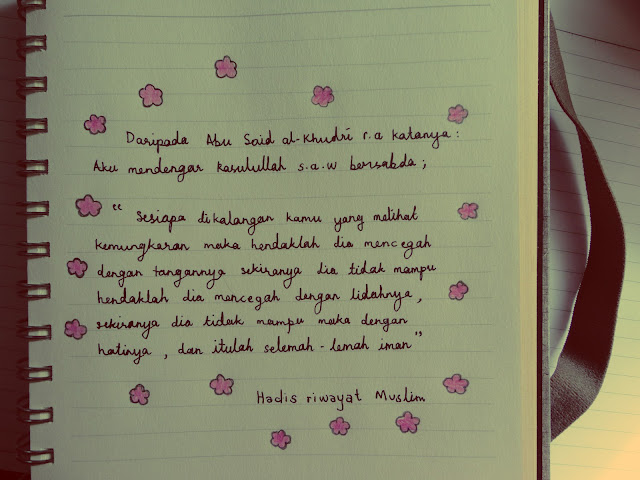 Daripada Abu Said al-Khudri r.a katanya :
Aku mendengar Rasulullah s.a.w bersabda ;
“ Sesiapa dikalangan kamu yang melihat
kemungkaran maka hendaklah dia mencegah
dengan tangannya sekiranya dia tidak mampu
hendaklah dia mencegah dengan lidahnya ,
sekiranya dia tidak mampu maka dengan
hatinya , dan itulah selemah - lemah iman ”
Hadis riwayat Muslim